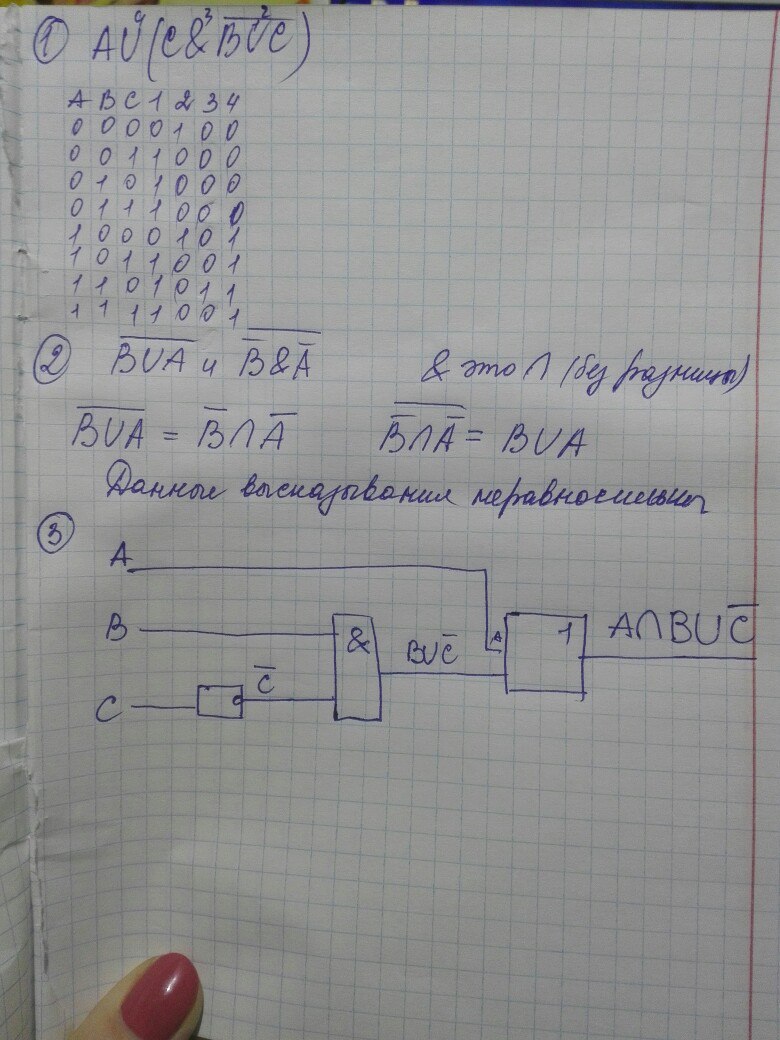 ① A∪⁴(C&³B̅∪̅²C̅)
A B C 1 2 3 4
0 0 0 0 1 0 0
0 0 1 1 0 0 0
0 1 0 1 0 0 0
0 1 1 1 0 0 0
1 0 0 0 1 0 1
1 0 1 1 0 0 1
1 1 0 1 0 1 1
1 1 1 1 0 0 1
② \overline{B∪A} и \overline{\overline{B}&\overline{A}} & это ∩ (без разницы)
\overline{B∪A} = \overline{B}∩\overline{A} \overline{\overline{B}∩\overline{A}} = B∪A
Данные высказывания неравносильны
③
A
B & B∪\overline{C} A 1 A∩B∪\overline{C}
C \overline{C}